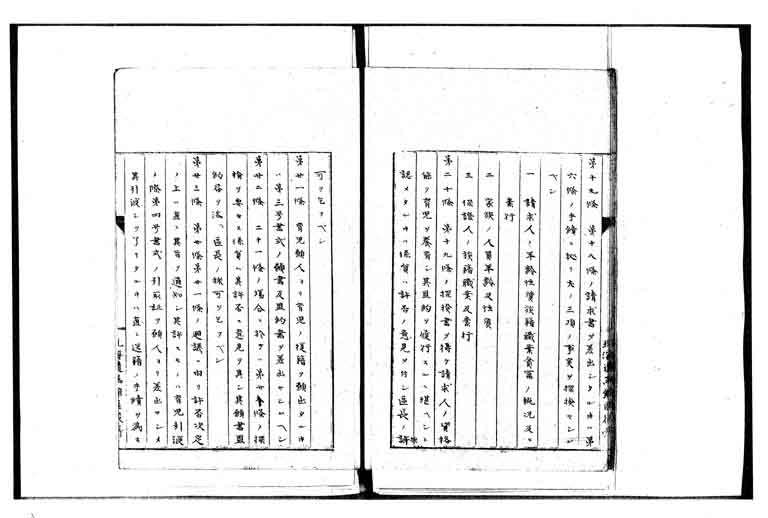 第十九條 第十八條ノ請求書ヲ差出シタルキハ第
六條ノ手續ニ拠リ左ノ三項ノ事実ヲ探検セシム
ベシ
一 請求人ノ年齢性質族籍職業貧富ノ概況及ヒ
素行
二 家族ノ人員年齢及性質
三 保證人ノ族籍職業及素行
第二十條 第十九條ノ探検書ヲ得テ請求人ノ資格
能ク育児ヲ養育シ其盟約ヲ履行スルニ堪ヘシト
認メタルキハ係員ハ許否ノ意見ヲ付シ區長ノ許
可ヲ乞フベシ
第廿一條 育児願人ヨリ育児ノ復籍ヲ願出タルキ
ハ第三号書式ノ願書及盟約書ヲ差出サシムベシ
第廿二條 二十一條ノ場合ニ於テハ第廿條ノ探
検ヲ要セス係員ハ其許否ニ意見ヲ具シ其願書盟
約書ヲ添ヘ區長ノ裁可ヲ乞フベシ
第廿三條 第廿條第廿一條ノ廻議ニ由リ許否決定
ノ上ハ直ニ其旨ヲ通知シ其許スモノハ育児引渡
ノ際第四号書式ノ引取証ヲ願人ヨリ差出サシメ
其引渡シヲ了リタルキハ直ニ送籍ノ手續ヲ為ス